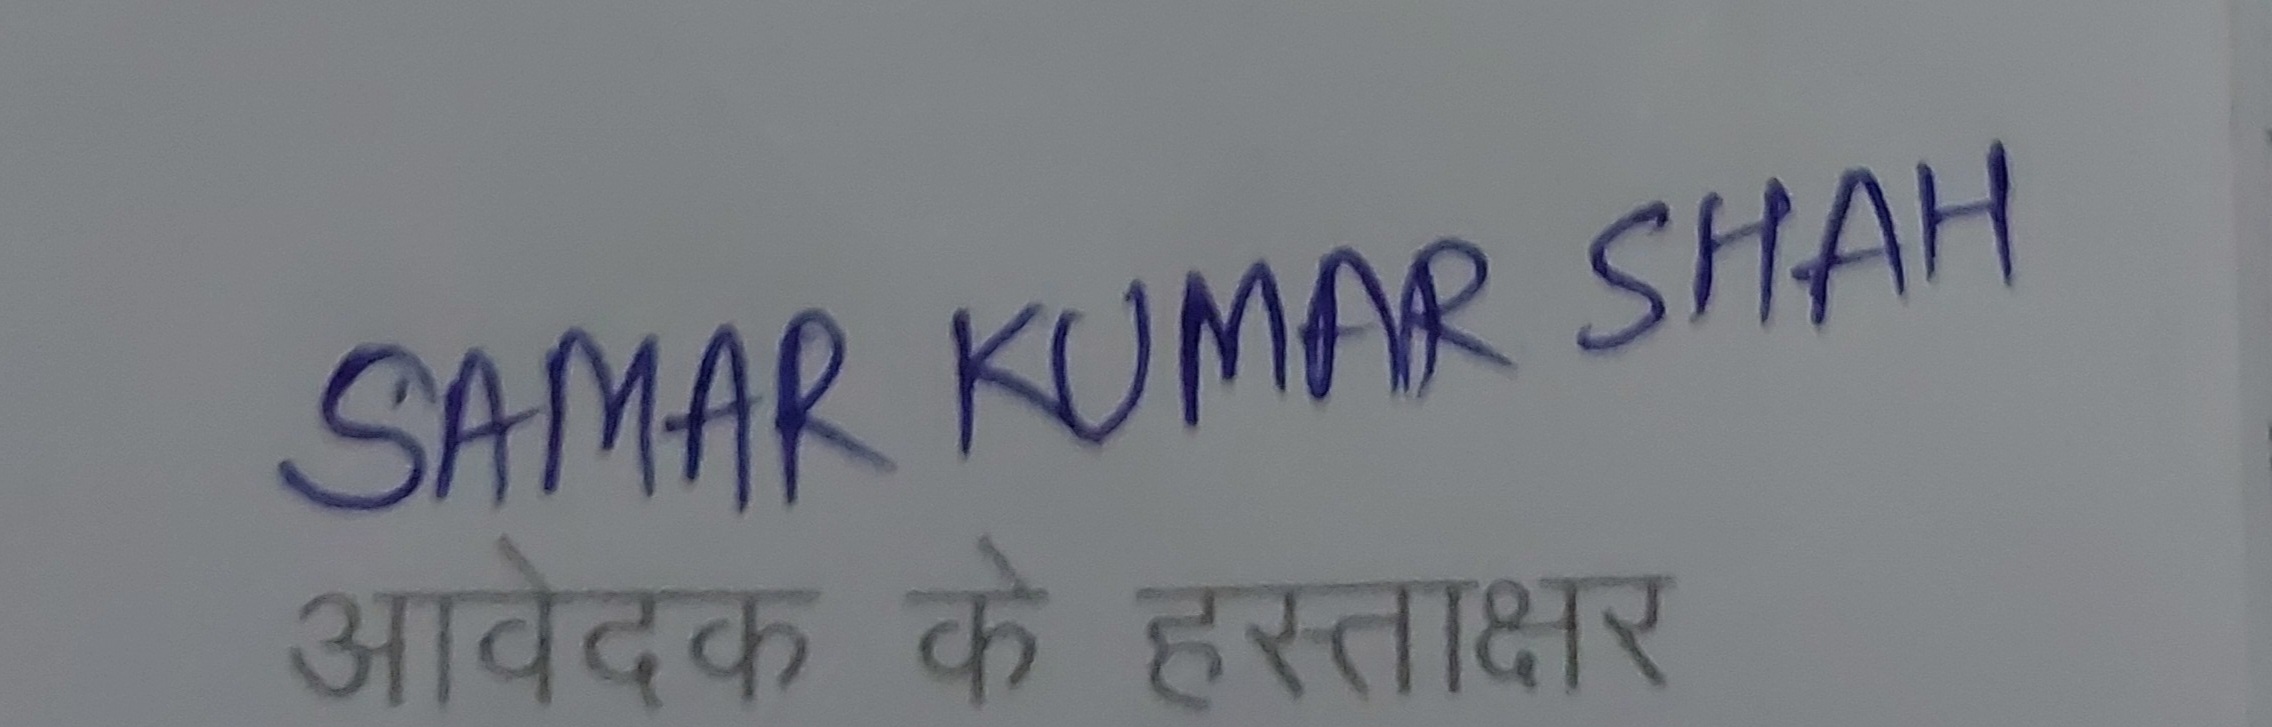 SAMAR KUMAR SHAH
आवेदक के हस्ताक्षर